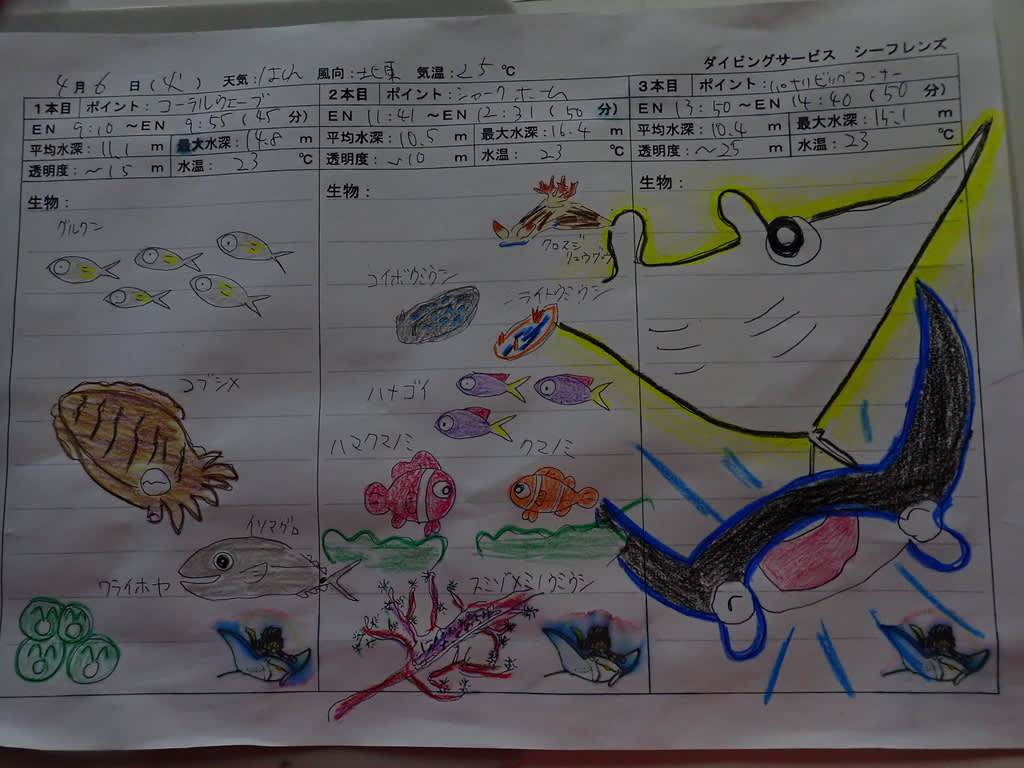 ダイビングサービス シーフレンズ
4月 6日(火) 天気:はれ 風向:北東 気温:25℃
1本目 ポイント:コーラルウェーブ
EN 9:10 ~EN 9:55 (45分)
平均水深:11.1 m 最大水深:14.8 m
透明度:~15 m 水温:23 ℃
生物:
グルクン
コブシメ
イソマグロ
ワライホヤ
2本目 ポイント:シャークホール
EN 11:41 ~EN 12:31 (50分)
平均水深:10.5 m 最大水深:16.4 m
透明度:~10 m 水温:23 ℃
生物:
クロスジ
リュウグウ
コイボウミウシ
ニライトウミウシ
ハナゴイ
ハマクマノミ
クマノミ
スミゾメミノウミウシ
3本目 ポイント:
EN 13:50 ~EN 14:40 (50分)
平均水深:10.4 m 最大水深:15.1 m
透明度:~25 m 水温:23 ℃
生物: